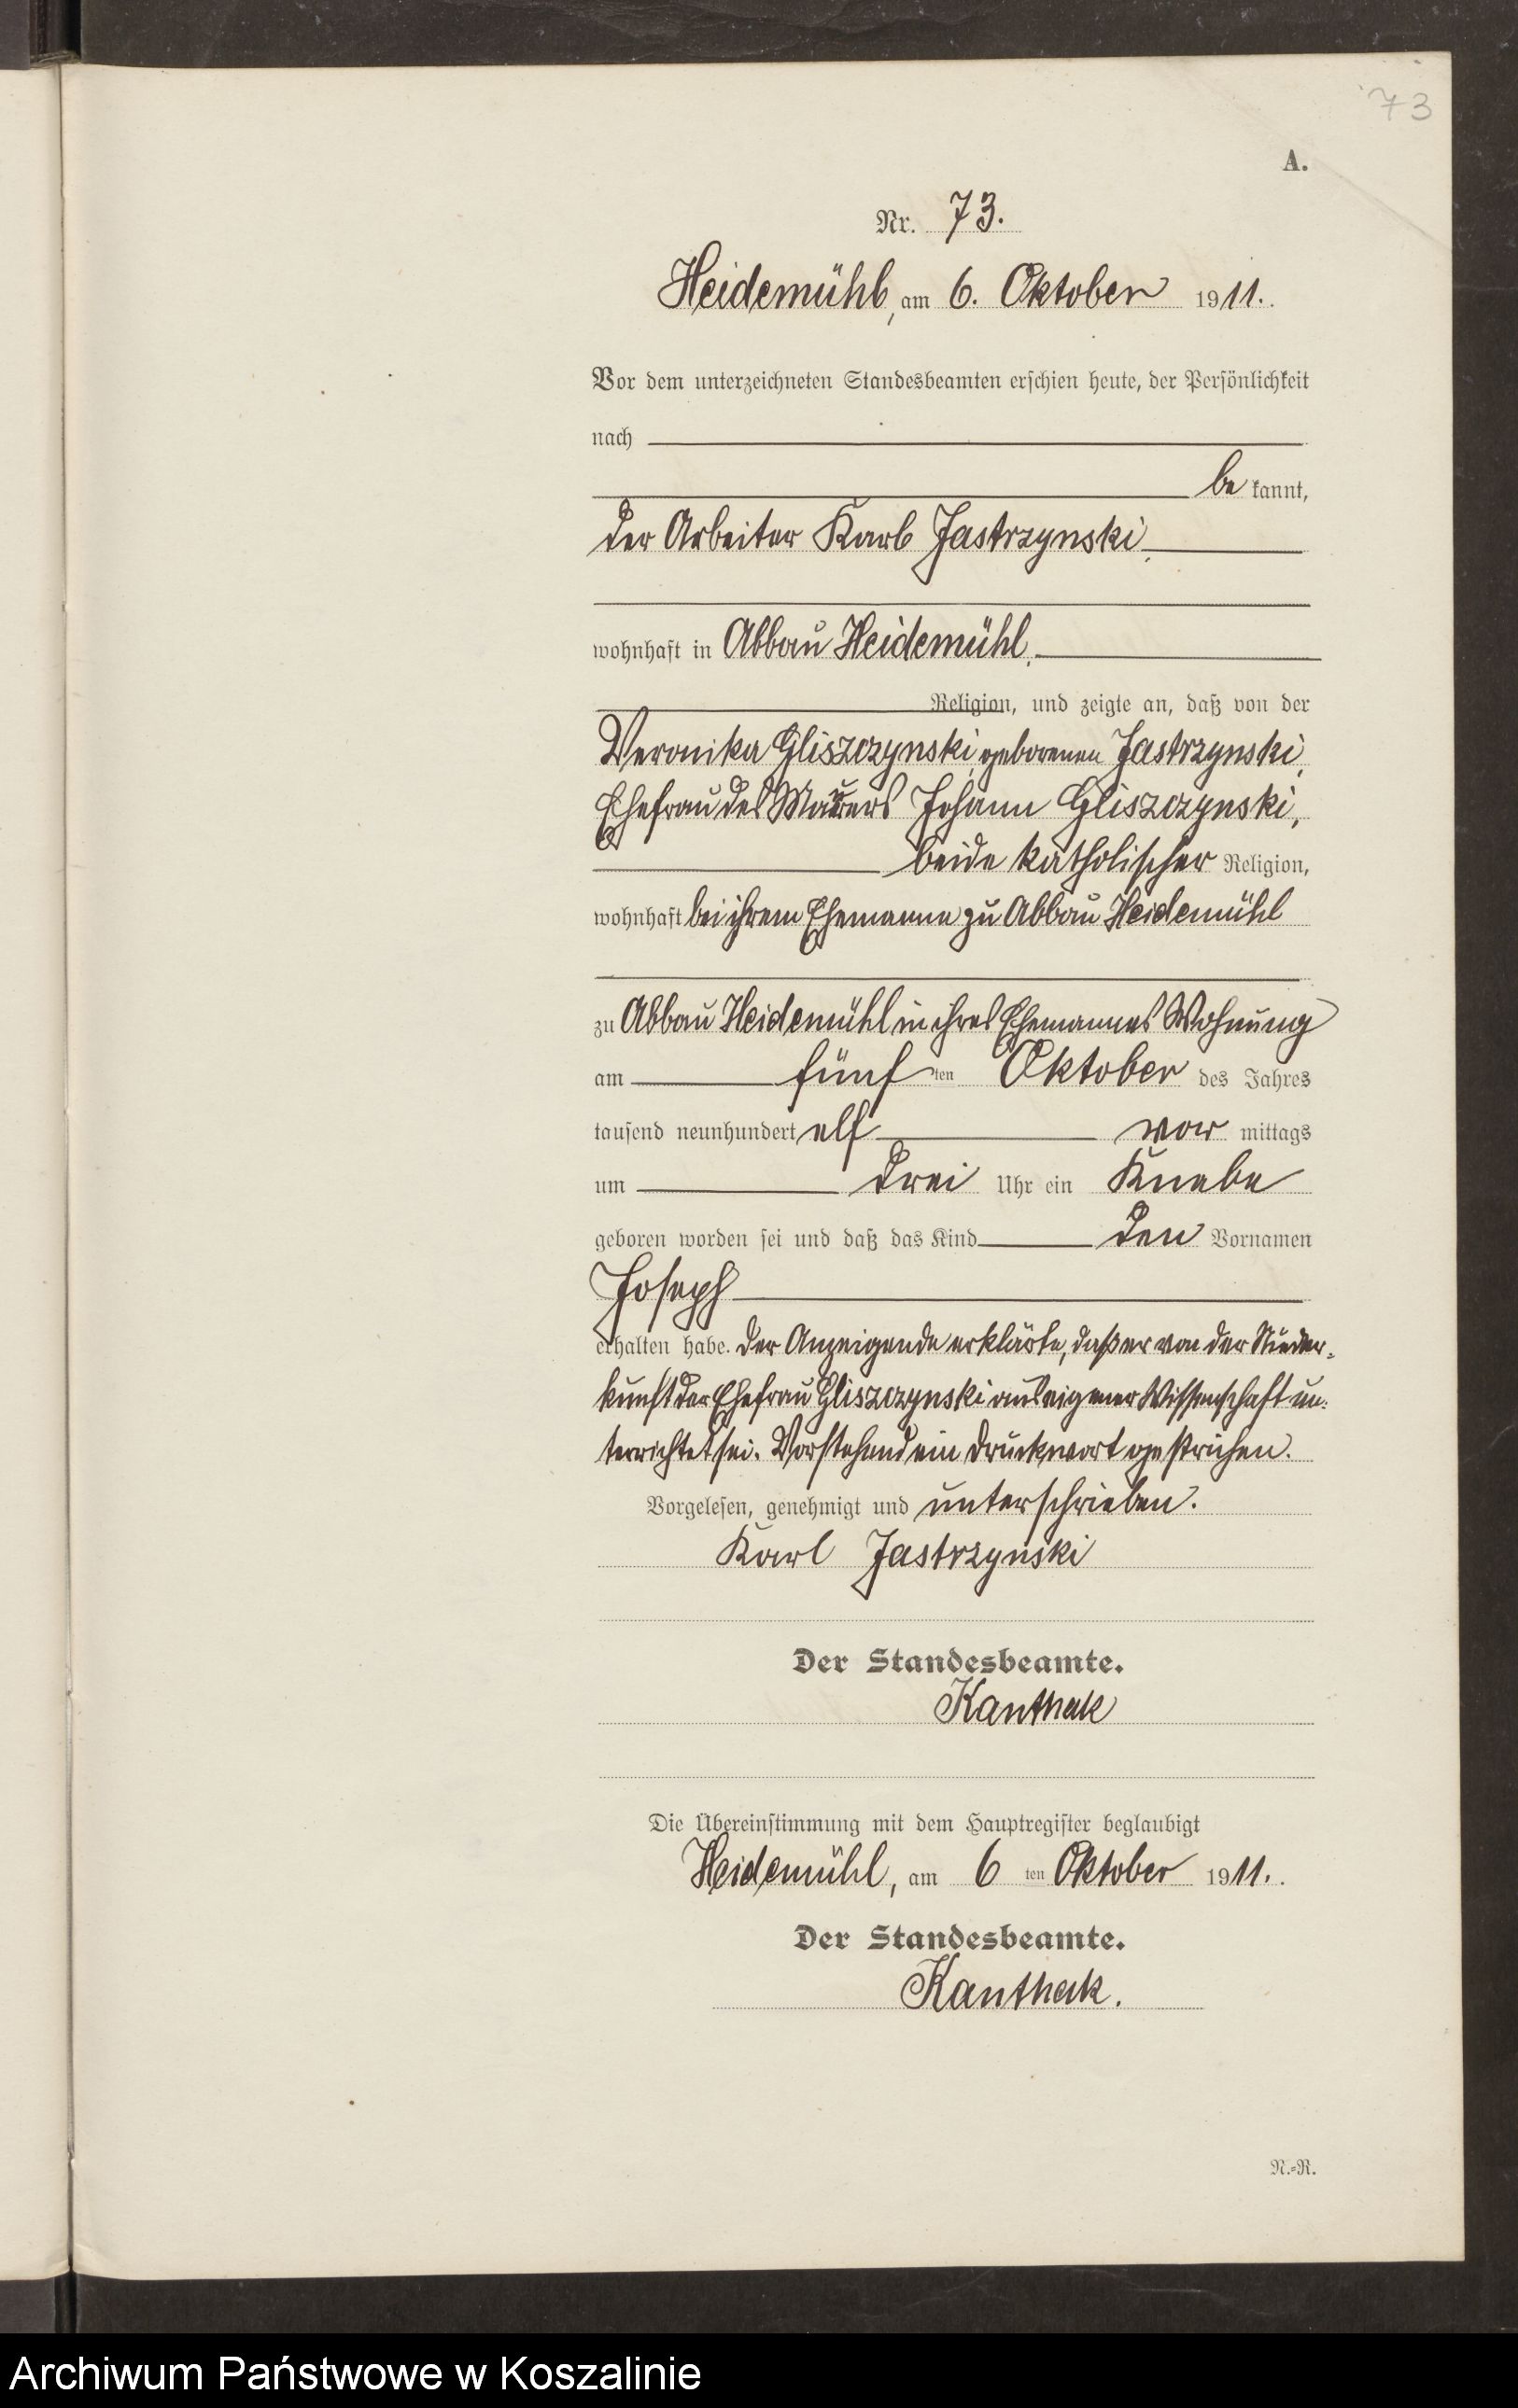 73
A.
Nr. 73.
Heidemühl, am 6. Oktober 1911.
Vor dem unterzeichneten Standesbeamten erschien heute, der Persönlichkeit
nach
be kannt,
der Arbeiter Karl Jastrzynski,
wohnhaft in Abbau Heidemühl,
Religion, und zeigte an, daß von der
Veronika Gliszczynski, geborenen Jastrzynski,
Ehefrau des Maurers Johann Gliszczynski,
beide katholischer Religion,
wohnhaft bei ihrem Ehemanne zu Abbau Heidemühl
zu Abbau Heidemühl in ihres Ehemannes Wohnung
am fünf ten Oktober des Jahres
tausend neunhundert elf vor mittags
um drei Uhr ein Knabe
geboren worden sei und daß das Kind den Vornamen
Joseph
erhalten habe. Der Anzeigende erklärte, daß er von der Nieder-
kunft der Ehefrau Gliszczynski aus eigener Wissenschaft un-
terrichtet sei. Vorstehend ein Druckwort gestrichen.
Vorgelesen, genehmigt und unterschrieben.
Karl Jastrzynski
Der Standesbeamte.
Kanthak
Die Übereinstimmung mit dem Hauptregister beglaubigt
Heidemühl, am 6 ten Oktober 1911.
Der Standesbeamte.
Kanthak.
N.-R.
Archiwum Państwowe w Koszalinie